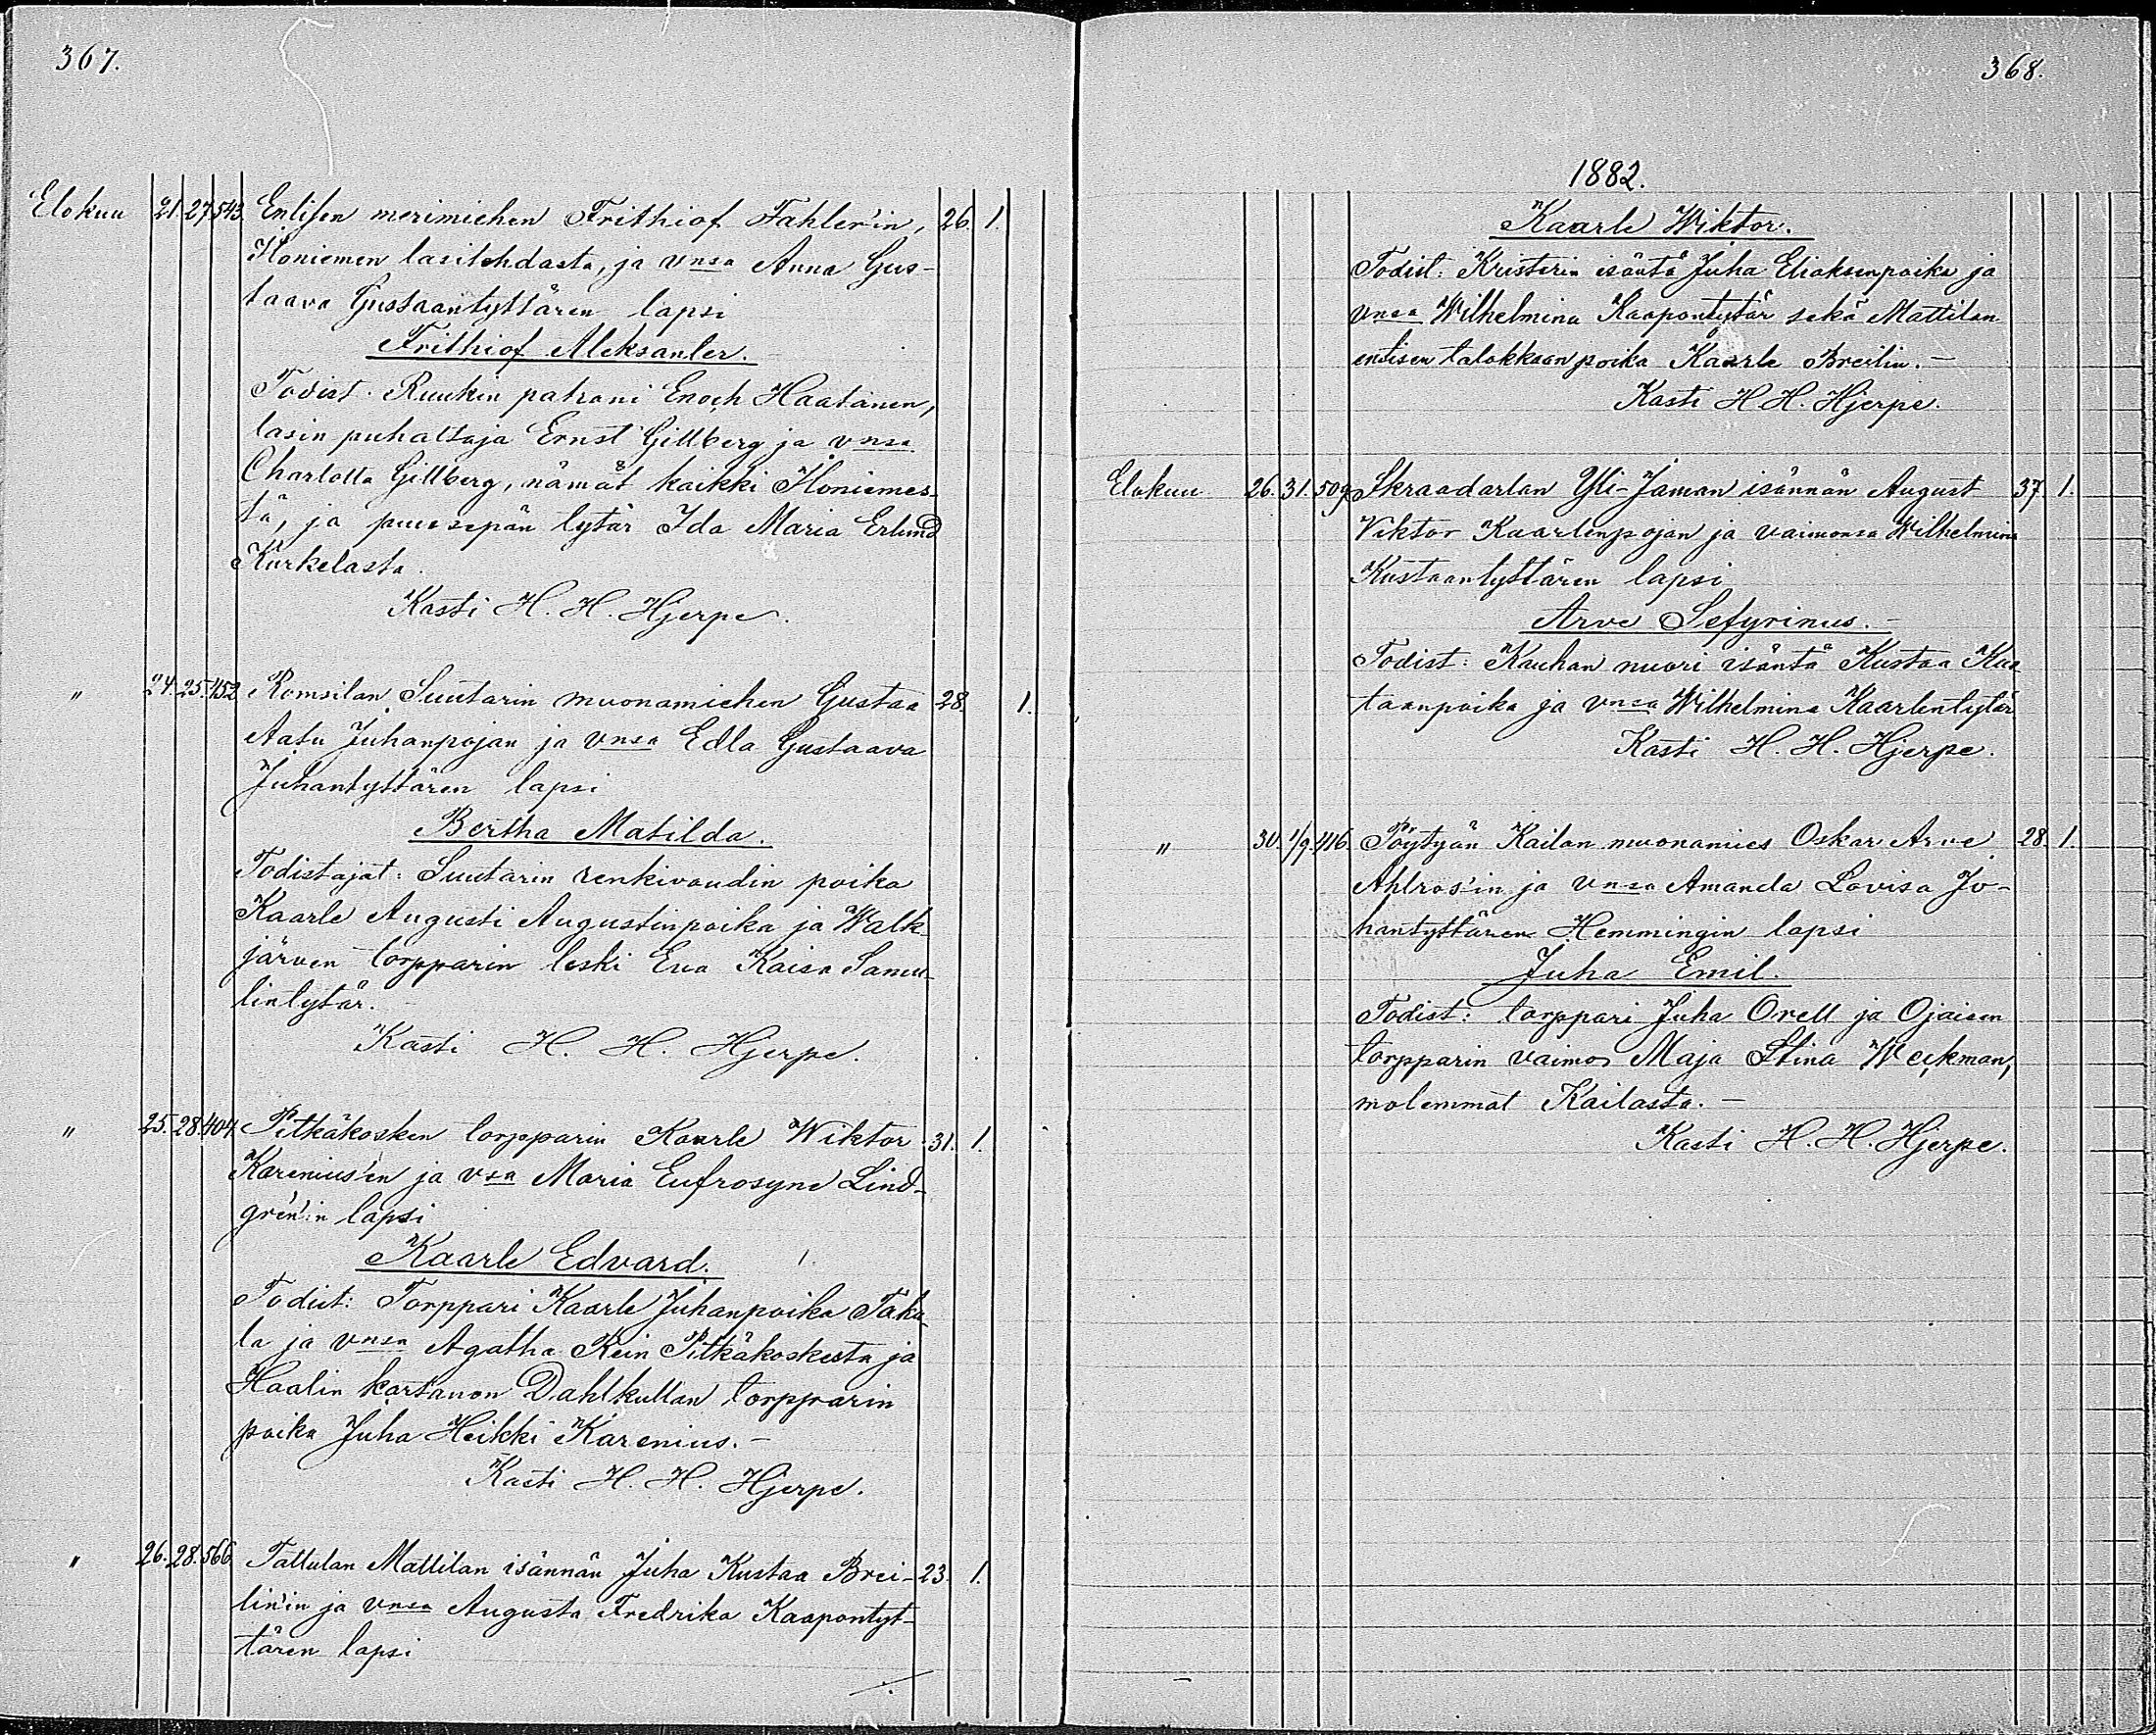 367.
Elokuu 21. 27. 543. Entisen merimiehen Frithiof Fahler'in, 26. 1.
Höniemen lasitehdasta, ja vnsa Anna Gus-
taava Gustaantyttären lapsi
Frithiof Aleksanter.
Todist. Ruukin patroni Enoch Haatanen,
lasin puhaltaja Ernst Gillberg ja vnsa
Charlotta Gillberg, nämät kaikki Höniemes-
tä, ja puusepän tytär Ida Maria Erlund
Kurkelasta.
Kasti H. H. Hjerpe.
" 24. 25. 452 Romsilan Suutarin muonamiehen Gustaa 28. 1.
Aatu Juhanpojan ja vnsa Edla Gustaava
Juhantyttären lapsi
Bertha Matilda.
Todistajat: Suutarin renkivoudin poika
Kaarle Augusti Augustinpoika ja Walk-
järven torpparin leski Eva Kaisa Samu-
lintytär.
Kasti H. H. Hjerpe.
" 25. 28. 404. Pitkäkosken torpparin Kaarle Wiktor 31. 1.
Karenius'en ja vsa Maria Eufrosyne Lind-
gren'in lapsi
Kaarle Edvard.
Todist: Torppari Kaarle Juhanpoika Taku-
la ja vnsa Agatha Rein Pitkäkoskesta ja
Haalin kartanon Dahlkullan torpparin
poika Juha Heikki Karenius.-
Kasti H. H. Hjerpe.
" 26. 28. 566 Tattulan Mattilan isännän Juha Kustaa Brei- 23. 1.
lin'in ja vnsa Augusta Fredrika Kaapontyt-
tären lapsi
368.
1882.
Kaarle Wiktor.
Todist: Kristerin isäntä Juha Eliaksenpoika ja
vnsa Wilhelmina Kaapontytär sekä Mattilan
entisen talokkaan poika Kaarle Breilin.-
Kasti H. H. Hjerpe.
Elokuu 26. 31. 509 Skraadarlan Yli-Jaman isännän August 37 1.
Viktor Kaarlenpojan ja vaimonsa Wilhelmina
Kustaantyttären lapsi
Arve Sefyrinus.-
Todist: Kauhan nuori isäntä Kustaa Kus-
taanpoika ja vnsa Wilhelmina Kaarlentytär
Kasti H. H. Hjerpe.
" 30. 1/9. 416. Pöytyän Kailan muonamies Oskar Arve 28. 1.
Ahlros'in ja vnsa Amanda Lovisa Jo-
hantyttären Hemmingin lapsi
Juha Emil.
Todist: torppari Juha Orell ja Ojaisen
torpparin vaimo Maja Stina Weckman,
molemmat Kailasta.-
Kasti H. H. Hjerpe.